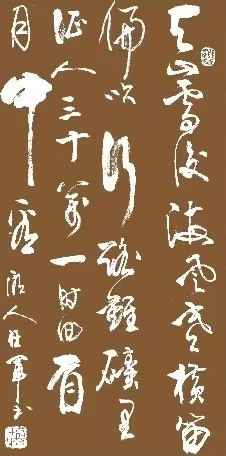 天山雪後海風寒橫笛
偏吹行路難磧里
征人三十萬一時回首
月中看